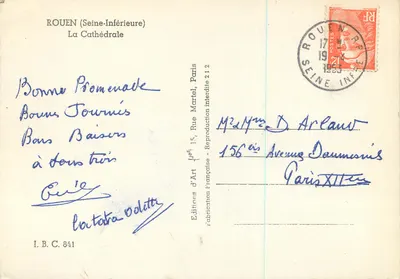 ROUEN (Seine-Inférieure)
La Cathédrale
Bonne Promenade
Bonne Journés
Bons Baisers
à tous trois
Odette
I. B. C. 841
Editions d'Art 15, Rue Martel, Paris
d'fabrication d'empotée - Reproduction interdite 212
RF
ROUEN R.P.
17
19
1953
SEINE INFRE
Mr & Mme D. Arland
156 bis Avenue Daumesnil
Paris XII